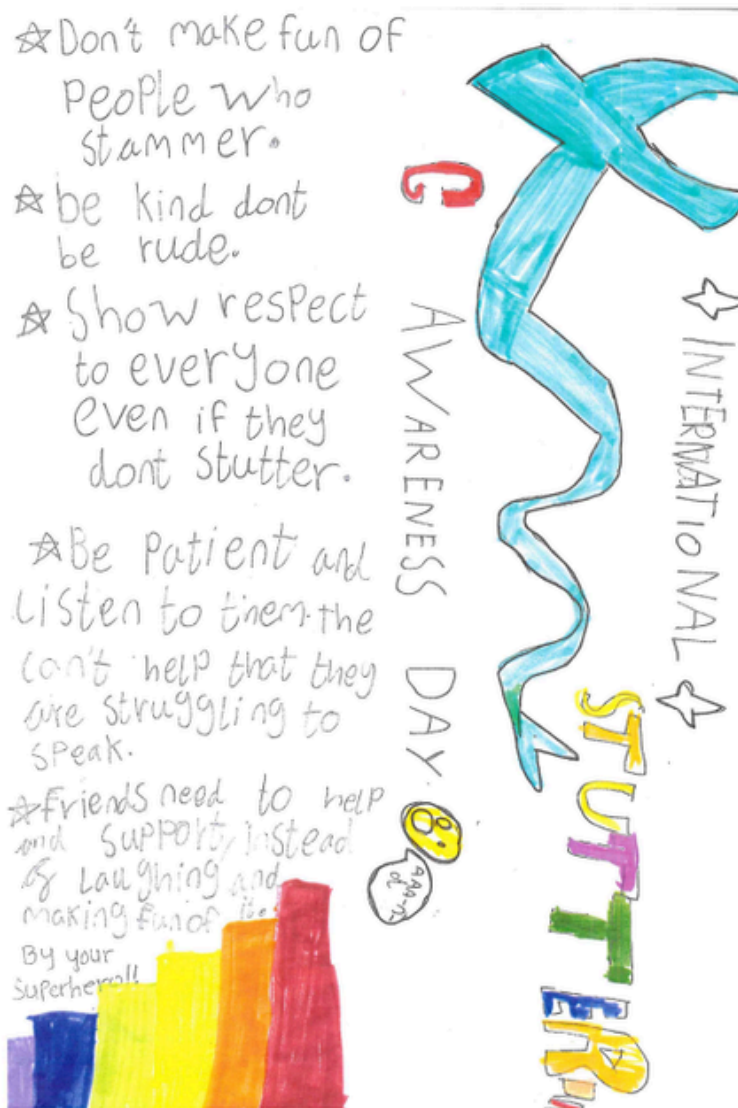 ☆ Don't make fun of
people who
stammer.
☆ be kind dont
be rude.
☆ Show respect
to everyone
even if they
dont stutter.
☆ Be patient and
Listen to them.the
can't help that they
are struggling to
speak.
☆ Friends need to help
and support, instead
of Laughing and
making fun of it.
By your
Superhero!!
☆ INTERNATIONAL ☆
STUTTERI
C
AWARENESS DAY